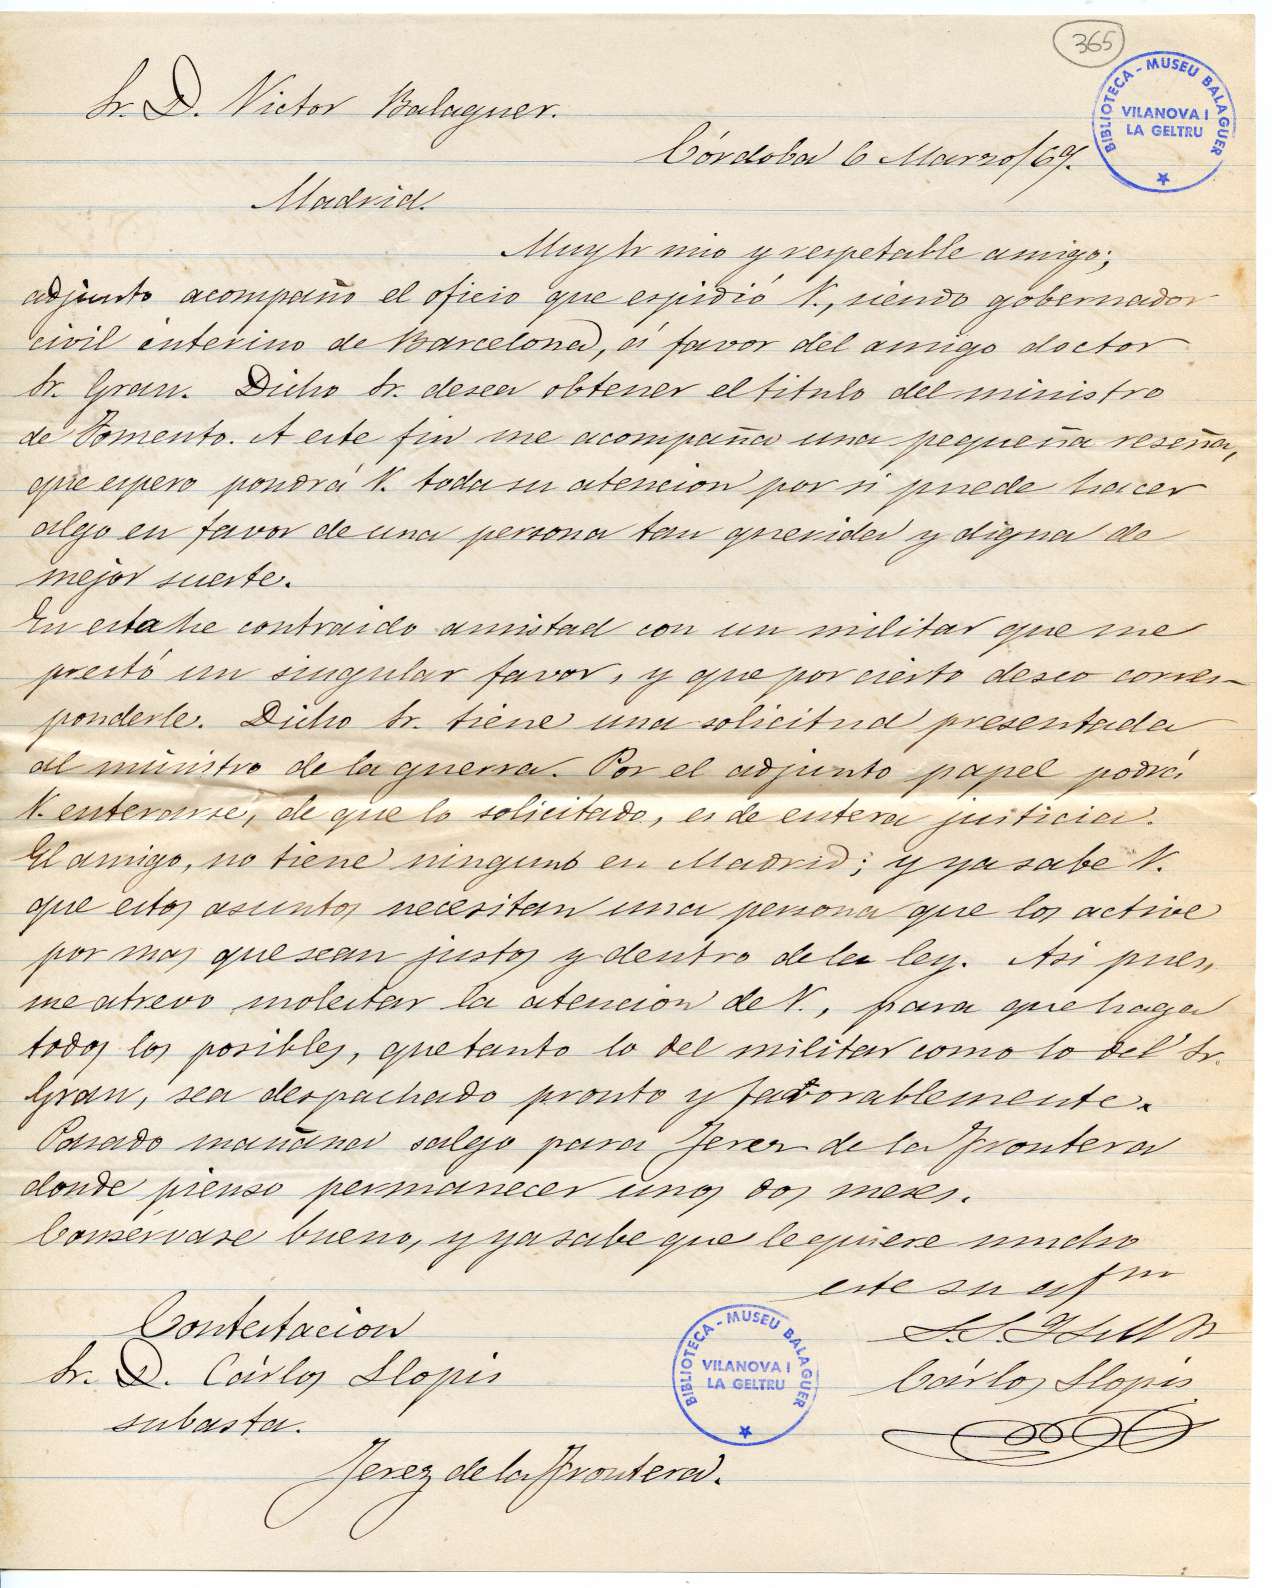 365
BIBLIOTECA - MUSEU BALAGUER
VILANOVA I
LA GELTRU
Sr. D. Victor Balaguer.
Córdoba 6 Marzo/69.
Madrid.
Muy Sr mio y respetable amigo;
adjunto acompaño el oficio que espidió V., siendo gobernador
civil interino de Barcelona, á favor del amigo doctor
Sr. Grau. Dicho Sr. desea obtener el titulo del ministro
de Fomento. A este fin me acompaña una pequeña reseña,
que espero pondrá V. toda su atencion por si puede hacer
algo en favor de una persona tan querida y digna de
mejor suerte.
En esta he contraido amistad con un militar que me
prestó un singular favor, y que por cierto deseo corres-
ponderle. Dicho Sr. tiene una solicitud presentada
al ministro de la guerra. Por el adjunto papel podrá
V. enterarse, de que lo solicitado, es de entera justicia.
El amigo, no tiene ninguno en Madrid; y ya sabe V.
que estos asuntos necesitan una persona que los active
por mas que sean justos y dentro de la ley. Asi pues,
me atrevo molestar la atencion de V., para que haga
todos los posibles, que tanto lo del militar como lo del Sr.
Grau, sea despachado pronto y favorablemente.
Pasado mañana salgo para Jerez de la Frontera
donde pienso permanecer unos dos meses.
Consérvase bueno, y ya sabe que le quiere mucho
este su afmo
Contestacion
Sr. D. Cárlos Llopis
Cárlos Llopis
subasta.
Jerez de la Frontera.
BIBLIOTECA - MUSEU BALAGUER
VILANOVA I
LA GELTRU